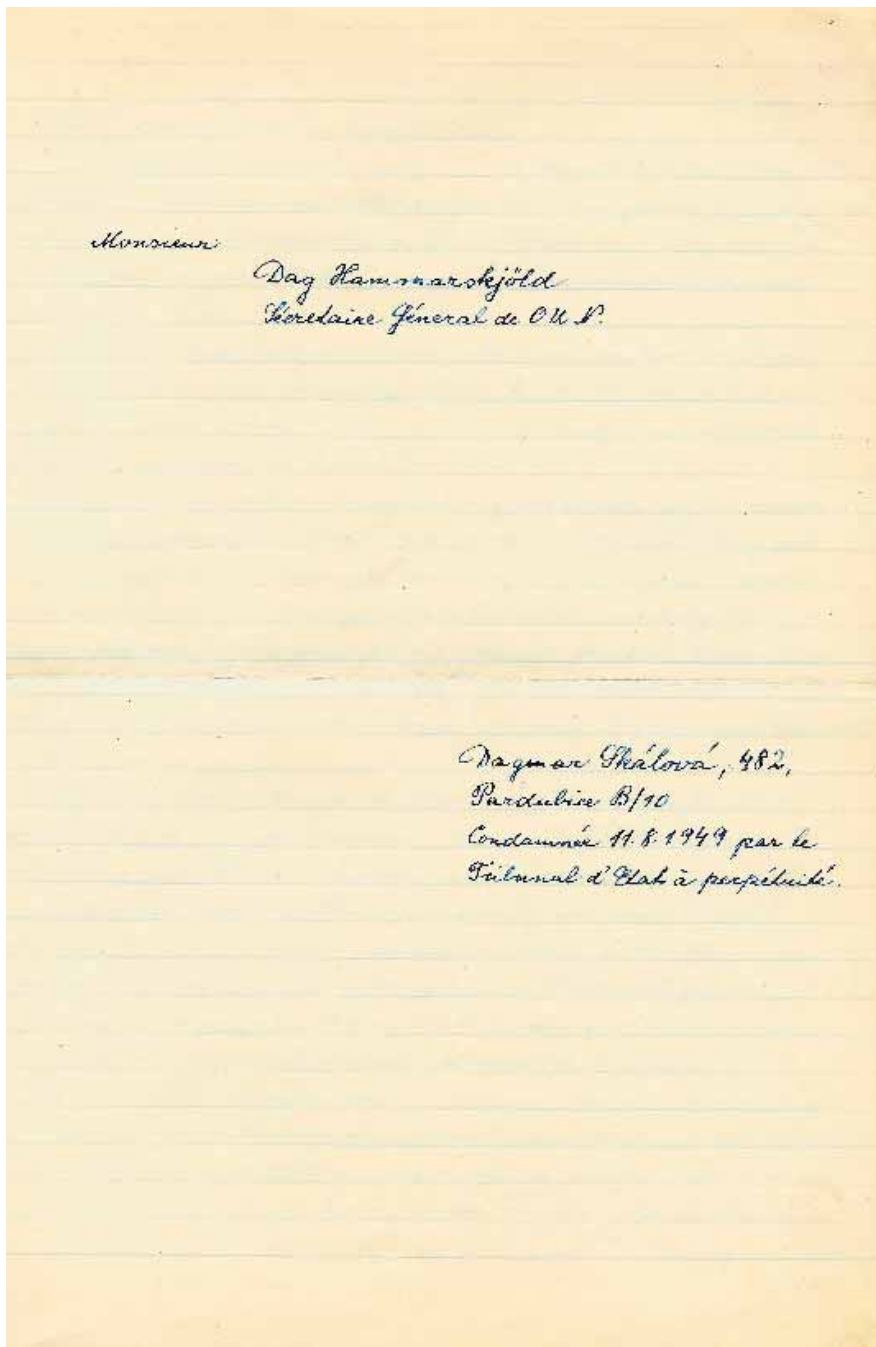 Monsieur
Dag Hammarskjöld
Sécretaire Géneral de OUN.
Dagmar Skálová, 482,
Pardubice B/10
Condamnée 11.8.1949 par le
Tribunal d'Etat à perpétuité.